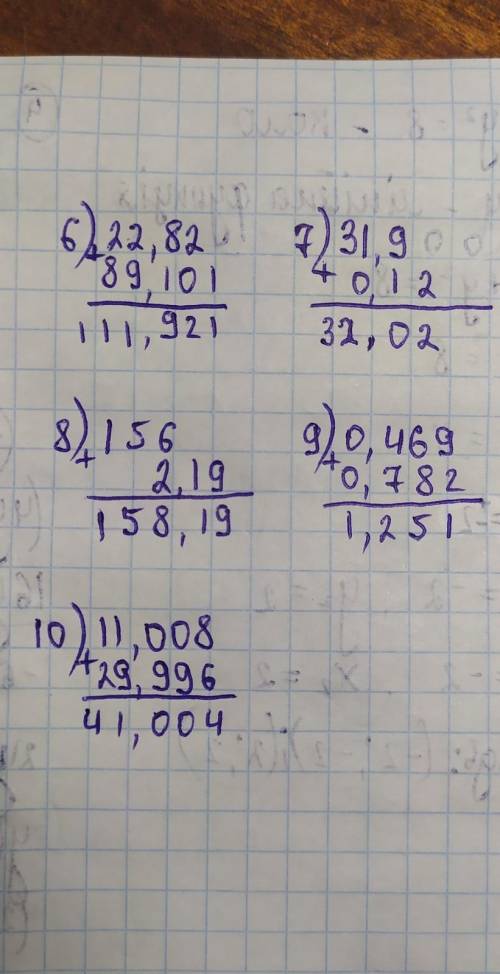 6) 22,82
+ 89,101
111,921
7) 31,9
+ 0,12
32,02
8) 156
+ 2,19
158,19
9) 0,469
+ 0,782
1,251
10) 11,008
+ 29,996
41,004